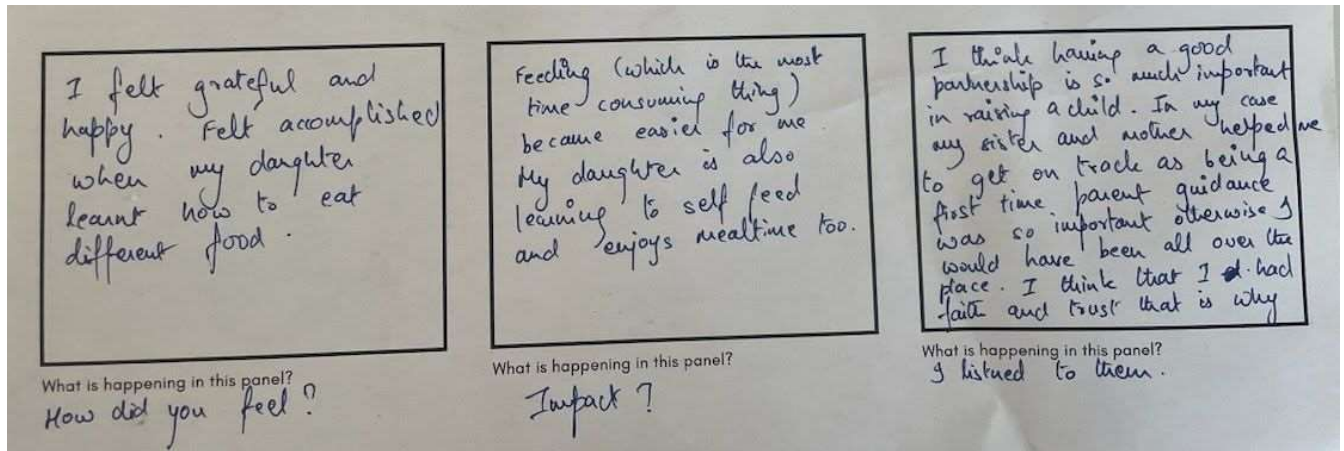 I felt grateful and
happy. Felt accomplished
when my daughter
learnt how to eat
different food.
What is happening in this panel?
How did you feel?
Feeding (which is the most
time consuming thing)
became easier for me
My daughter is also
learning to self feed
and enjoys mealtime too.
What is happening in this panel?
Impact?
I think having a good
partnership is so much important
in raising a child. In my case
my sister and mother helped me
to get on track as being a
first time parent guidance
was so important otherwise I
would have been all over the
place. I think that I had
faith and trust that is why
What is happening in this panel?
I listned to them.